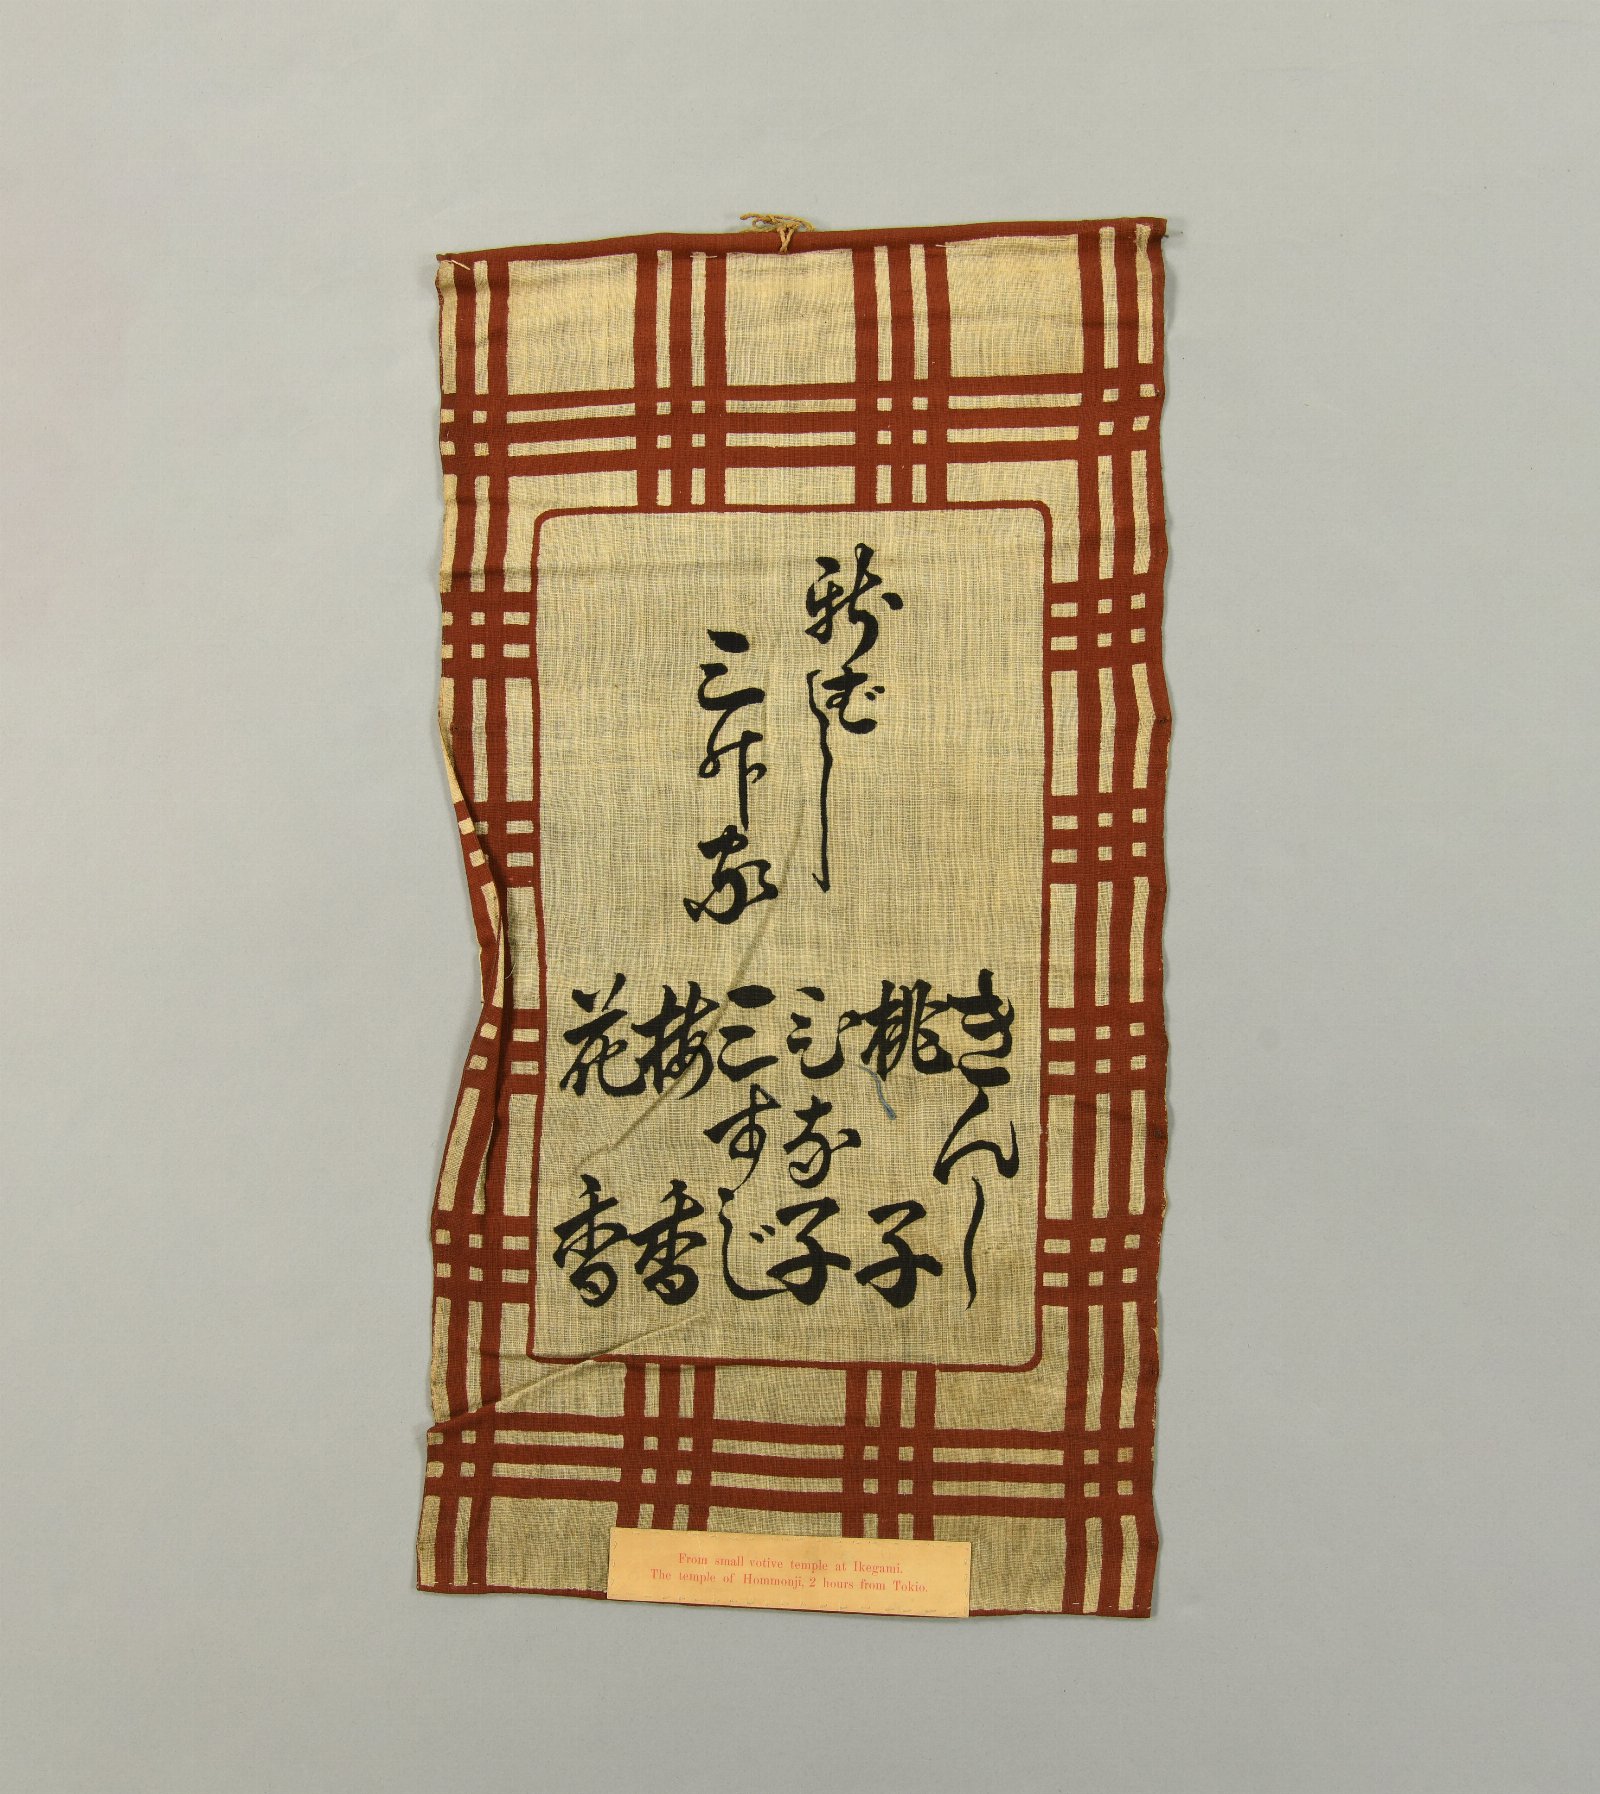 新ばし
三升家
きん
桃子
ひな子
三すじ
梅香
花香
From small votive temple at Ikegami.
The temple of Hommonji, 2 hours from Tokio.